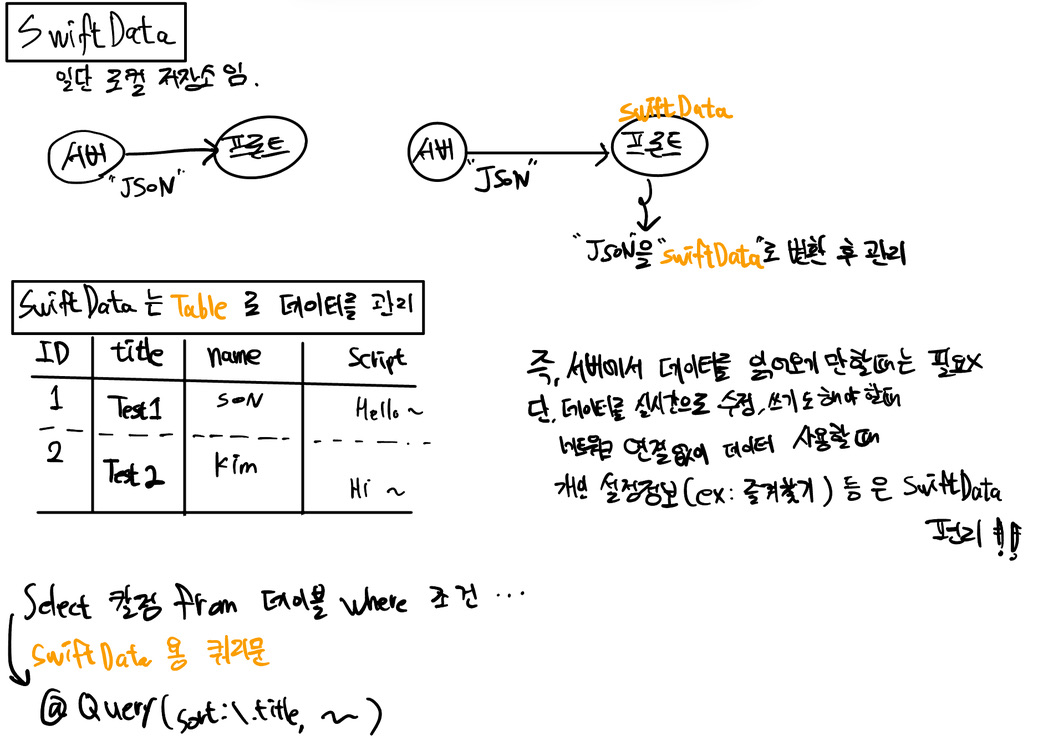 SwiftData
일단 로컬 저장소 임.
서버 프론트
"JSON"
swiftData
서버 프론트
"JSON"
"JSON"을 "swiftData"로 변환 후 관리
SwiftData 는 Table 로 데이터를 관리
ID title name Script
1 Test1 son Hello ~
2 Test 2 kim Hi ~
즉, 서버에서 데이터를 읽어오기만 할때는 필요X
단, 데이터를 실시간으로 수정, 쓰기도 해야 할때
네트워크 연결 없이 데이터 사용할 때
개인 설정정보(ex: 즐겨찾기) 등 은 SwiftData
편리 !!
Select 칼럼 from 테이블 where 조건 ...
SwiftData 용 쿼리문
@Query(sort:\.title, ~)